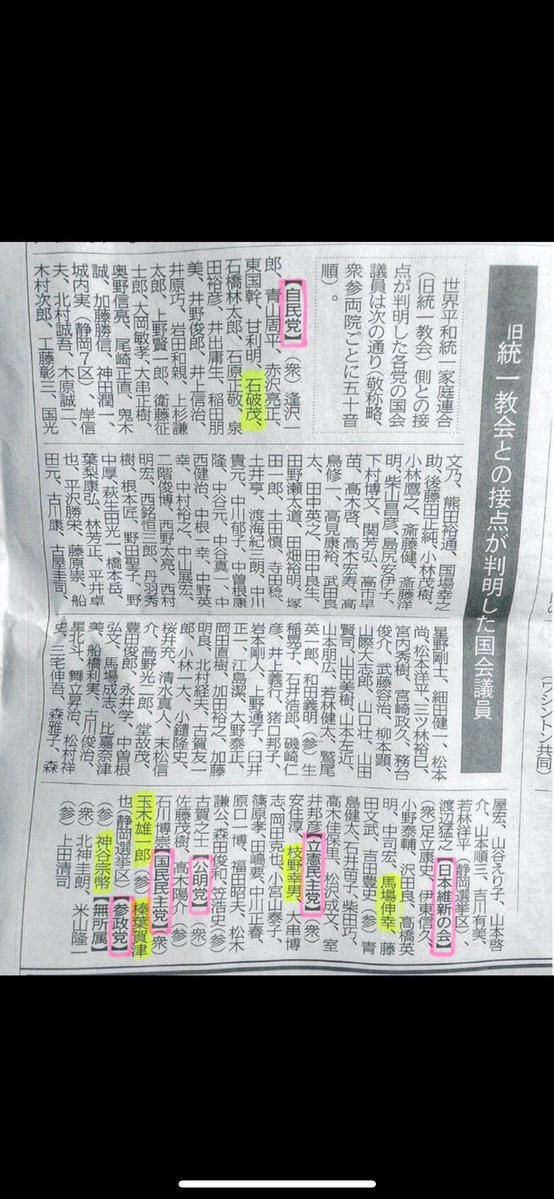 旧統一教会との接点が判明した国会議員
世界平和統一家庭連合
（旧統一教会）側との接
点が判明した各党の国会
議員は次の通り（敬称略、
衆参両院ごとに五十音
順）。
【自民党】（衆）逢沢一
郎、青山周平、赤沢亮正、
東国幹、甘利明、石破茂、
石橋林太郎、石原正敬、泉
田裕彦、井出庸生、稲田朋
美、井野俊郎、井上信治、
井原巧、岩田和親、上杉謙
太郎、上野賢一郎、衛藤征
士郎、大岡敏孝、大串正樹、
奥野信亮、尾崎正直、鬼木
誠、加藤勝信、神田潤一、
城内実（静岡7区）、岸信
夫、北村誠吾、木原誠二、
木村次郎、工藤彰三、国光
文乃、熊田裕通、国場幸之
助、後藤田正純、小林茂樹
小林鷹之、斎藤健、斎藤洋
明、柴山昌彦、島尻安伊子、
下村博文、関芳弘、高市早
苗、高木啓、高木宏寿、高
鳥修一、高見康裕、武田良
太、田中英之、田中良生、
田野瀬太道、田畑裕明、塚
田一郎、土田慎、寺田稔、
土井亨、渡海紀三朗、中川
貴元、中川郁子、中曽根康
隆、中谷元、中谷真一、中
西健治、中根一幸、中野英
幸、中村裕之、中山展宏、
二階俊博、西野太亮、西村
明宏、西銘恒三郎、丹羽秀
樹、根本匠、野田聖子、野
中厚、萩生田光一、橋本岳、
葉梨康弘、林芳正、平井卓
也、平沢勝栄、藤原崇、船
田元、古川康、古屋圭司、
星野剛士、細田健一、松本
尚、松本洋平、三ツ林裕巳、
宮内秀樹、宮崎政久、務台
俊介、武藤容治、柳本顕、
山際大志郎、山口壮、山田
賢司、山田美樹、山本左近、
山本朋広、若林健太、鷲尾
英一郎、和田義明（参）生
稲晃子、石井浩郎、磯崎仁
彦、井上義行、猪口邦子、
岩本剛人、上野通子、臼井
正一、江島潔、大野泰正、
岡田直樹、加田裕之、加藤
明良、北村経夫、古賀友一
郎、小林一大、小鑓隆史、
桜井充、清水真人、末松信
介、高野光二郎、堂故茂、
豊田俊郎、永井学、中曽根
弘文、馬場成志、比嘉奈津
美、船橋利実、古川俊治、
星北斗、舞立昇治、松村祥
史、三宅伸吾、森雅子、森
屋宏、山谷えり子、山本啓
介、山本順三、吉川有美、
若林洋平（静岡選挙区）、
渡辺猛之【日本維新の会】
（衆）足立康史、伊東信久、
小野泰輔、沢田良、高橋英
明、中司宏、馬場伸幸、藤
田文武、吉田豊史（参）青
島健太、石井苗子、柴田巧、
高木佳保里、松沢成文、室
井邦彦【立憲民主党】（衆）
安住淳、枝野幸男、大串博
志、岡田克也、小宮山泰子、
篠原孝、田嶋要、中川正春、
原口一博、福田昭夫、松木
謙公、森田俊和、笠浩史（参）
古賀之士【公明党】（衆）
佐藤茂樹、高木陽介（参）
石川博崇【国民民主党】（衆）
玉木雄一郎（参）榛葉賀津
也（静岡選挙区）【参政党】
（参）神谷宗幣【無所属】
（衆）北神圭朗、米山隆一
（参）上田清司
（ワシントン共同）